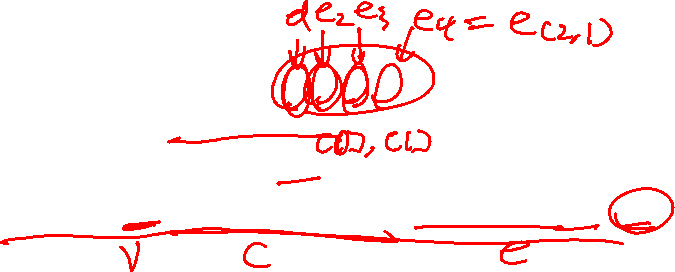 d e2 e3 e4 = e(2,1)
C(1), C(1)
V C E